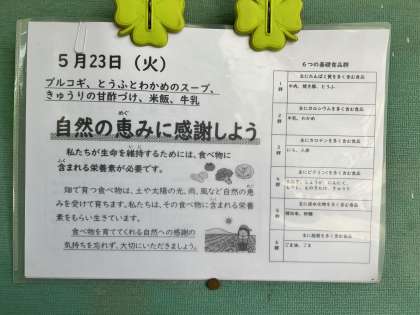 5月23日（火）
プルコギ、とうふとわかめのスープ、
きゅうりの甘酢づけ、米飯、牛乳
自然の恵みに感謝しよう
私たちが生命を維持するためには、食べ物に
含まれる栄養素が必要です。
畑で育つ食べ物は、土や太陽の光、雨、風など自然の恵
みを受けて育ちます。私たちは、その食べ物に含まれる栄養
素をもらい生きています。
食べ物を育ててくれる自然への感謝の
気持ちを忘れず、大切にいただきましょう。
6つの基礎食品群
1群
主にたんぱく質を多く含む食品
牛肉、焼き豚、とうふ
2群
主にカルシウムを多く含む食品
牛乳、わかめ
3群
主にカロテンを多く含む食品
にら、人参
4群
主にビタミンCを多く含む食品
5群
主に炭水化物を多く含む食品
精白米、砂糖
6群
主に脂質を多く含む食品
ごま油、ごま